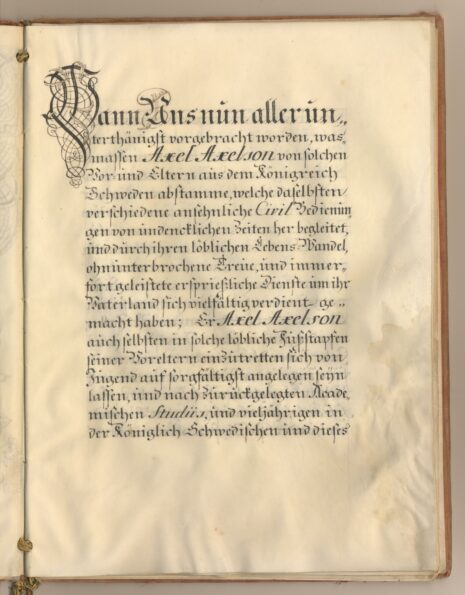 Wann Uns nun allerun„
terthänigst vorgebracht worden, was„
massen Axel Axelson von solchen
Vor- und Eltern aus dem Königreich
Schweden abstamme, welche daselbsten
verschiedene ansehnliche Civil Bedienun
gen von undencklichen Zeiten her begleitet,
und durch ihren löblichen Lebens-Wandel,
ohnunterbrochene Treue, und immer„
fort geleistete erspriesliche Dienste um ihr
Vaterland sich vielfältig verdient ge„
macht haben; Er Axel Axelson
auch selbsten in solche löbliche Fußstapfen
seiner Voreltern einzutretten sich von
Jugend auf sorgfältigst angelegen seÿn
lassen, und nach zurückgelegten Acade„
mischen Studiis, und vieljährigen in
der Königlich-Schwedischen und dieses